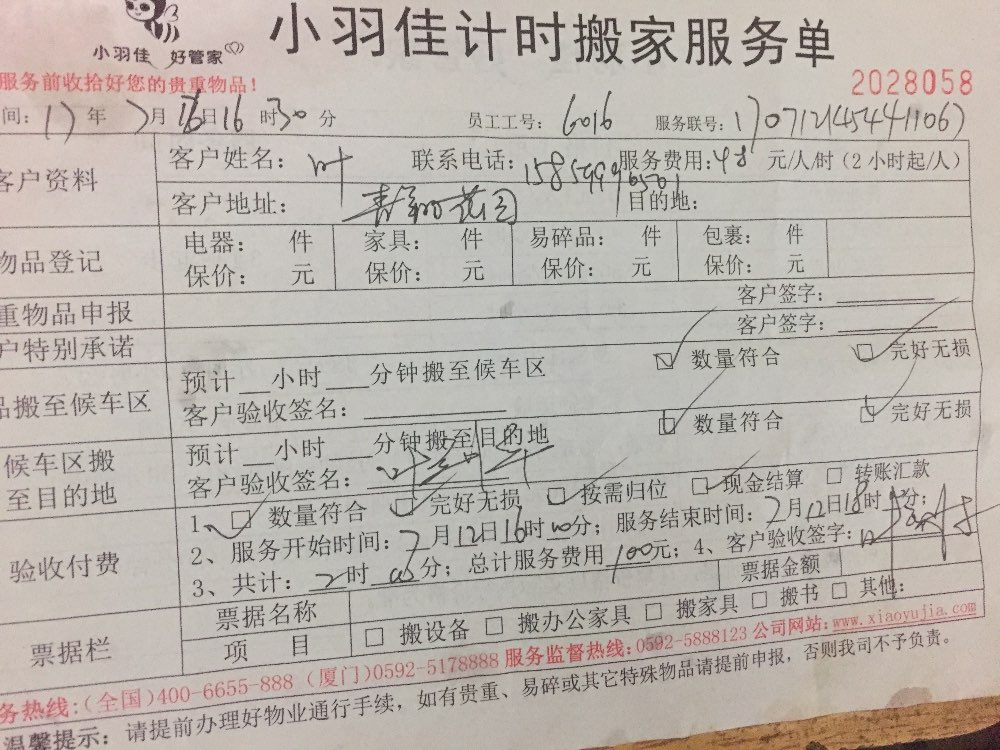 小羽佳 好管家
小羽佳计时搬家服务单
服务前收拾好您的贵重物品！
2028058
间：17年7月 日16时30分 员工工号：6016 服务联号：
客户资料 客户姓名：叶 联系电话： 服务费用：48元/人/时（2小时起/人）
客户地址： 花园 目的地：
物品登记 电器： 件 家具： 件 易碎品： 件 包裹： 件
保价： 元 保价： 元 保价： 元 保价： 元
重物品申报 客户签字：
户特别承诺 客户签字：
品搬至候车区 预计 小时 分钟搬至候车区 数量符合 完好无损
客户验收签名：
候车区搬至目的地 预计 小时 分钟搬至目的地 数量符合 完好无损
客户验收签名：
验收付费 1、 数量符合 完好无损 按需归位 现金结算 转账汇款
2、服务开始时间：7月12日16时00分；服务结束时间：7月12日18时 分；
3、共计：2时00分；总计服务费用100元；4、客户验收签字：
票据栏 票据名称 票据金额
项目 搬设备 搬办公家具 搬家具 搬书 其他：
务热线：（全国）400-6655-888（厦门）0592-5178888 服务监督热线：0592-5888123 公司网站：www.xiaoyujia.com
温馨提示：请提前办理好物业通行手续，如有贵重、易碎或其它特殊物品请提前申报，否则我司不予负责。